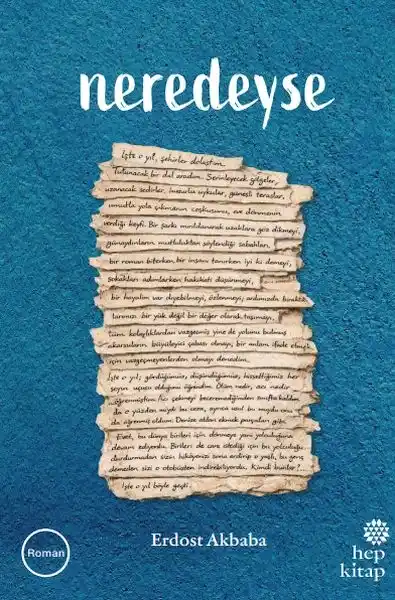 neredeyse
İşte o yıl, şehirler dolaştım.
Tutunacak bir dal aradım. Serinleyecek gölgeler,
uzanacak sedirler, huzurlu uykular, güneşli teraslar,
umutla yola çıkmanın coşkusunu, eve dönmenin
verdiği keyfi. Bir şarkı mırıldanarak uzaklara göz dikmeyi,
günaydınların mutluluktan söylendiği sabahları,
bir roman biterken, bir insanı tanırken iyi ki demeyi,
sokakları adımlarken hakikati düşünmeyi,
bir hayalim var diyebilmeyi, özlenmeyi, ardımızda bıraktık
larımızı bir yük değil bir değer olarak taşımayı,
tüm kolaylıklardan vazgeçmiş yine de yolunu bulmuş
akarsuların büyüleyici çabası olmayı, bir anlam ifade etmek
için vazgeçmeyenlerden olmayı denedim.
İşte o yıl; gördüğümüz, düşündüğümüz, hissettiğimiz her
şeyin uçucu olduğunu öğrendim. Ölüm nedir, acı nedir
öğrenmiştim. Acı çekmeyi beceremediğimden sınıfta kaldım
da o yüzden miydi bu ceza, ayrıca usul bu muydu onu
da öğrenmiş oldum. Denize atılan ekmek parçaları gibi.
Evet, bu dünya birileri için dönmeye yani yolculuğuna
devam ediyordu. Birileri de canı istediği için bu yolculuğu
durdurmadan sizin hikâyenizi sona erdirip o yaşlı, bu genç
demeden sizi o otobüsten indirebiliyordu. Kimdi bunlar?
İşte o yıl böyle geçti.
Erdost Akbaba
Roman
hep
kitap